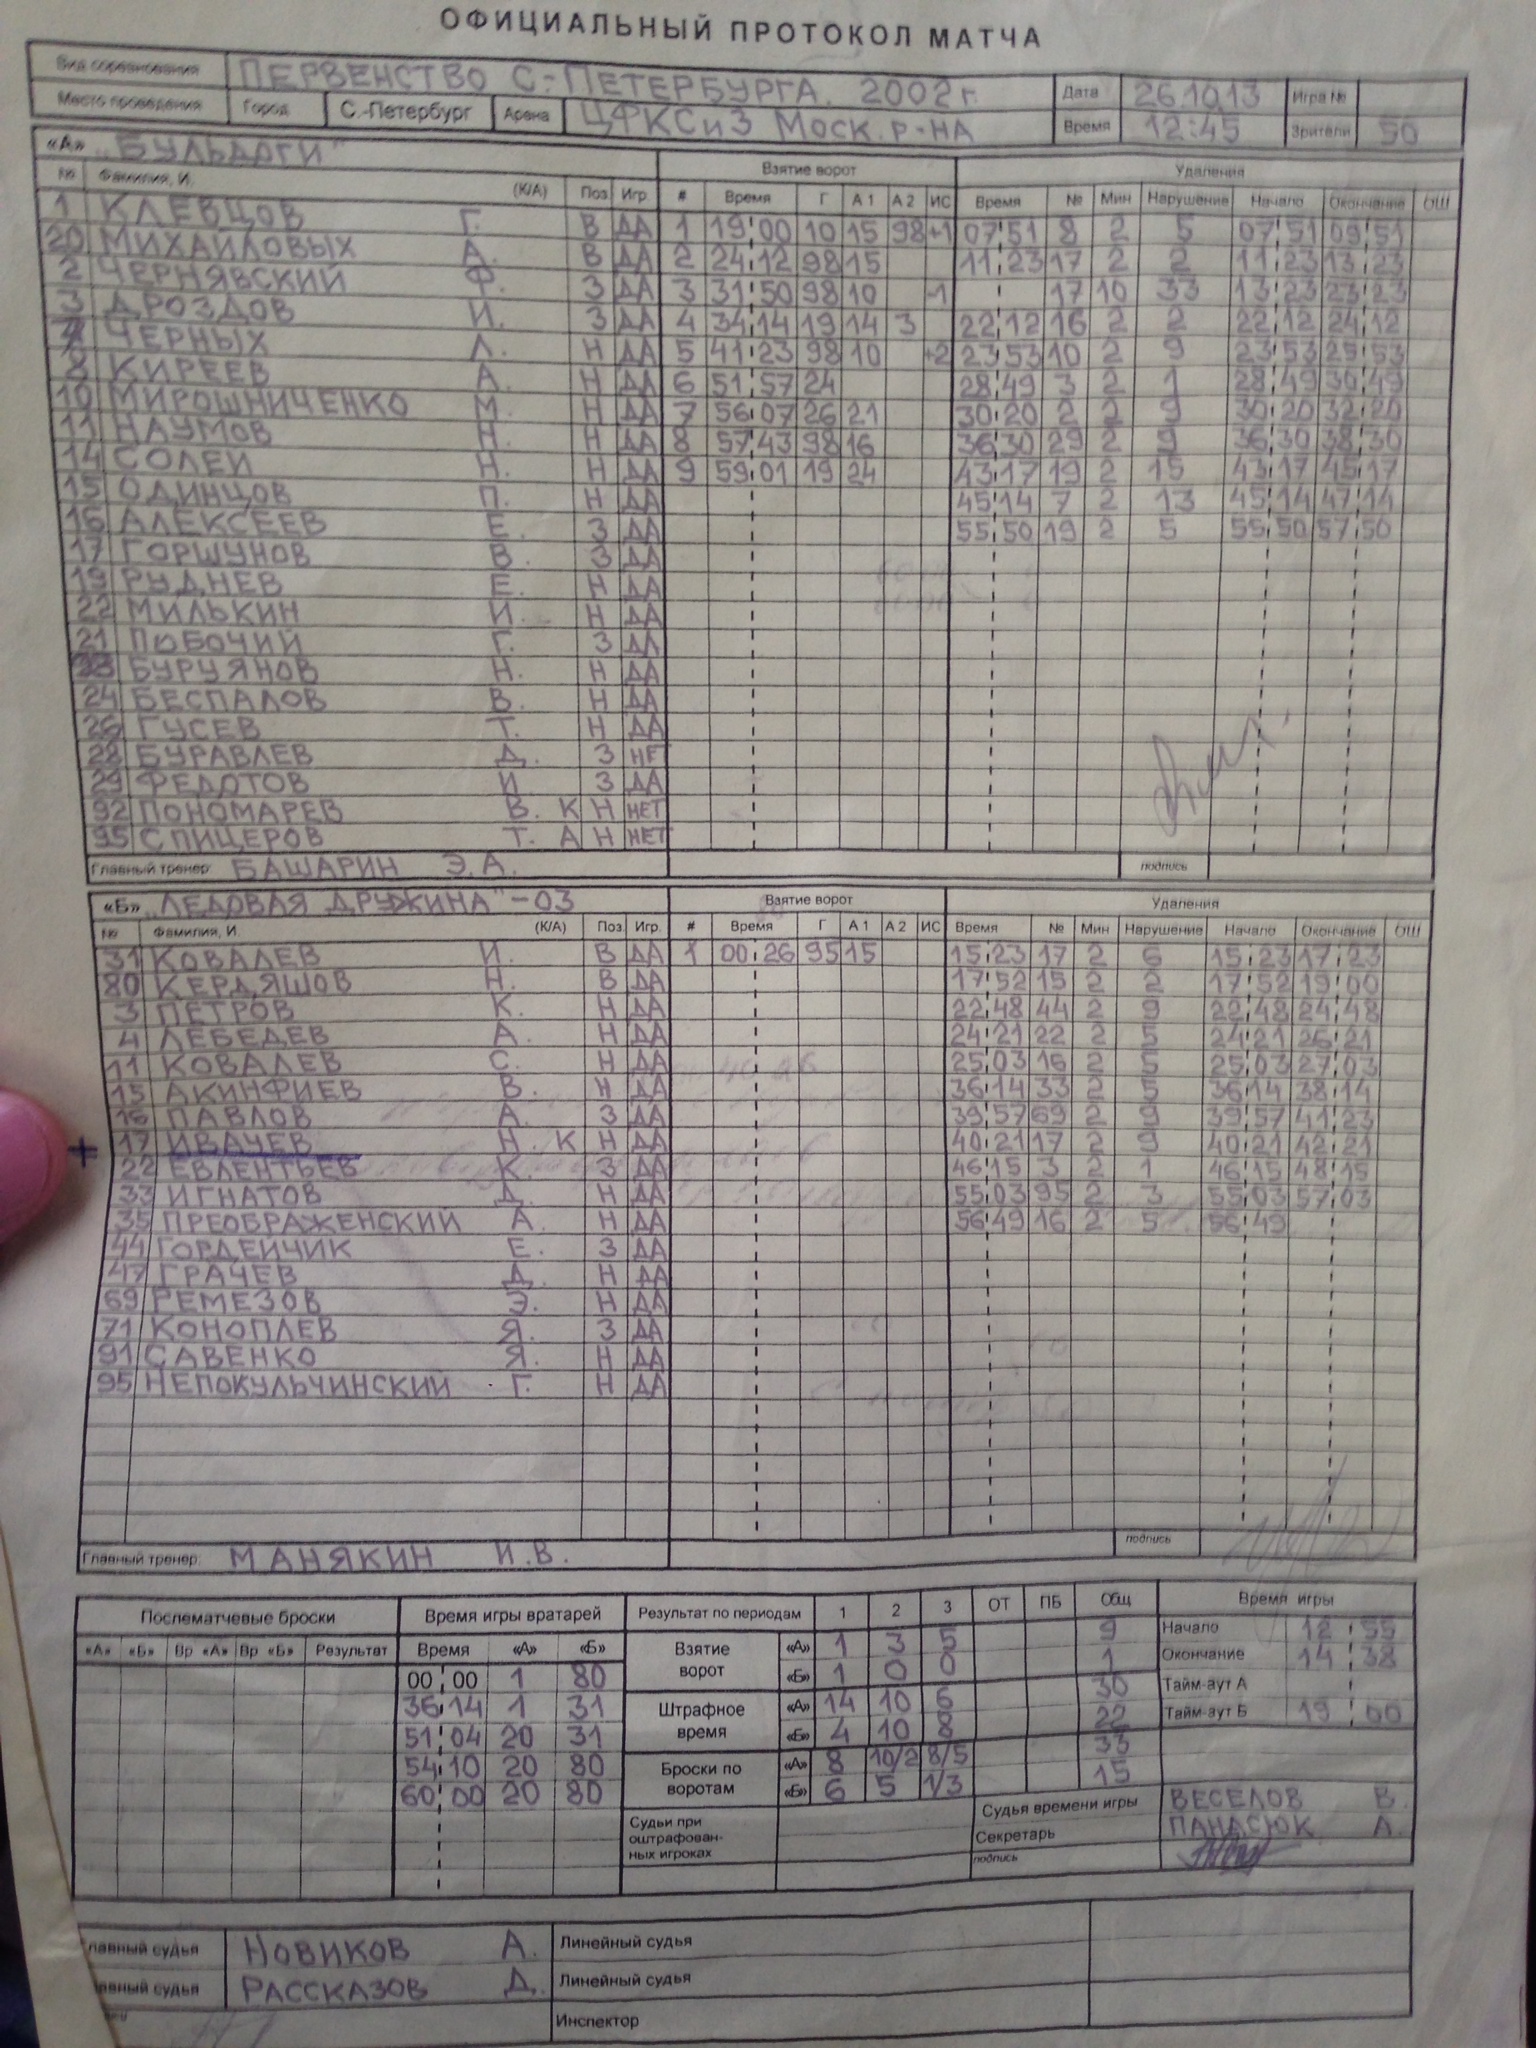 ОФИЦИАЛЬНЫЙ ПРОТОКОЛ МАТЧА
Вид соревнования ПЕРВЕНСТВО С.-ПЕТЕРБУРГА. 2002 г. Дата 26.10.13 Игра №
Место проведения Город С.-Петербург Арена ЦФКСиЗ МОСК. Р-НА Время 12:45 Зрители 50
«А» „БУЛЬДОГИ" Взятие ворот Удаления
№ Фамилия, И. (К/А) Поз. Игр. # Время Г А 1 А 2 ИС Время № Мин Нарушение Начало Окончание ОШ
1 КЛЕВЦОВ Г. В ДА 1 19:00 10 15 98 +1 07:51 8 2 5 07:51 09:51
20 МИХАЙЛОВЫХ А. В ДА 2 24:12 98 15 11:23 17 2 2 11:23 13:23
2 ЧЕРНЯВСКИЙ Ф. З ДА 3 31:50 98 10 -1 17 10 33 13:23 23:23
3 ДРОЗДОВ И. З ДА 4 34:14 19 14 3 22:12 16 2 2 22:12 24:12
7 ЧЕРНЫХ Л. Н ДА 5 41:23 98 10 +2 23:53 10 2 9 23:53 25:53
8 КИРЕЕВ А. Н ДА 6 51:57 24 28:49 3 2 1 28:49 30:49
10 МИРОШНИЧЕНКО М. Н ДА 7 56:07 26 21 30:20 2 2 9 30:20 32:20
11 НАУМОВ Н. Н ДА 8 57:43 98 16 36:30 29 2 9 36:30 38:30
14 СОЛЕЙ Н. Н ДА 9 59:01 19 24 43:17 19 2 15 43:17 45:17
15 ОДИНЦОВ П. Н ДА 45:14 7 2 13 45:14 47:14
16 АЛЕКСЕЕВ Е. З ДА 55:50 19 2 5 55:50 57:50
17 ГОРШУНОВ В. З ДА
19 РУДНЕВ Е. Н ДА
22 МИЛЬКИН И. Н ДА
21 ПОБОЧИЙ Г. З ДА
БУРУЯНОВ Н. Н ДА
24 БЕСПАЛОВ В. Н ДА
26 ГУСЕВ Т. Н ДА
28 БУРАВЛЕВ Д. З НЕТ
29 ФЕДОТОВ И. З ДА
92 ПОНОМАРЕВ В. К Н НЕТ
95 СПИЦЕРОВ Т. А Н НЕТ
Главный тренер: БАШАРИН Э.А. подпись
«Б» „ЛЕДОВАЯ ДРУЖИНА"-03 Взятие ворот Удаления
№ Фамилия, И. (К/А) Поз. Игр. # Время Г А 1 А 2 ИС Время № Мин Нарушение Начало Окончание ОШ
31 КОВАЛЕВ И. В ДА 1 00:26 95 15 15:23 17 2 6 15:23 17:23
80 КЕРДЯШОВ Н. В ДА 17:52 15 2 2 17:52 19:00
3 ПЕТРОВ К. Н ДА 22:48 44 2 9 22:48 24:48
4 ЛЕБЕДЕВ А. Н ДА 24:21 22 2 5 24:21 26:21
11 КОВАЛЕВ С. Н ДА 25:03 16 2 5 25:03 27:03
15 АКИНФИЕВ В. Н ДА 36:14 33 2 5 36:14 38:14
16 ПАВЛОВ А. З ДА 39:57 69 2 9 39:57 41:23
+ 17 ИВАЧЕВ Н. К Н ДА 40:21 17 2 9 40:21 42:21
22 ЕВЛЕНТЬЕВ К. З ДА 46:15 3 2 1 46:15 48:15
33 ИГНАТОВ Д. Н ДА 55:03 95 2 3 55:03 57:03
35 ПРЕОБРАЖЕНСКИЙ А. Н ДА 56:49 16 2 5 56:49
44 ГОРДЕЙЧИК Е. З ДА
47 ГРАЧЕВ Д. Н ДА
69 РЕМЕЗОВ Э. Н ДА
71 КОНОПЛЕВ Я. З ДА
91 САВЕНКО Я. Н ДА
95 НЕПОКУЛЬЧИНСКИЙ Г. Н ДА
Главный тренер: МАНЯКИН И.В. подпись
Послематчевые броски Время игры вратарей Результат по периодам 1 2 3 ОТ ПБ Общ Время игры
«А» «Б» Вр «А» Вр «Б» Результат Время «А» «Б» Взятие ворот «А» 1 3 5 9 Начало 12:55
00:00 1 80 «Б» 1 0 0 1 Окончание 14:38
36:14 1 31 Штрафное время «А» 14 10 6 30 Тайм-аут А
51:04 20 31 «Б» 4 10 8 22 Тайм-аут Б 19:00
54:10 20 80 Броски по воротам «А» 8 10/2 8/5 33
60:00 20 80 «Б» 6 5 1/3 15
Судьи при оштрафован-ных игроках Судья времени игры ВЕСЕЛОВ В.
Секретарь ПАНАСЮК А.
подпись
Главный судья НОВИКОВ А. Линейный судья
Главный судья РАССКАЗОВ Д. Линейный судья
Инспектор